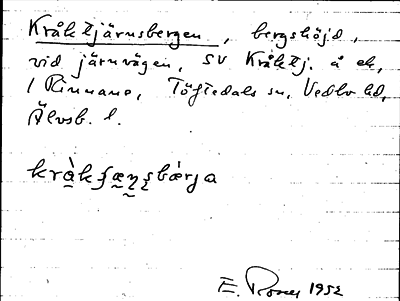 Kråktjärnsbergen, bergshöjd,
vid järnvägen, SV Kråktj. å ek,
1 Rinnane, Töftedals sn, Vedbo hd,
Älvsb. l.
kràkʃæɳʂbærja
E. 1952